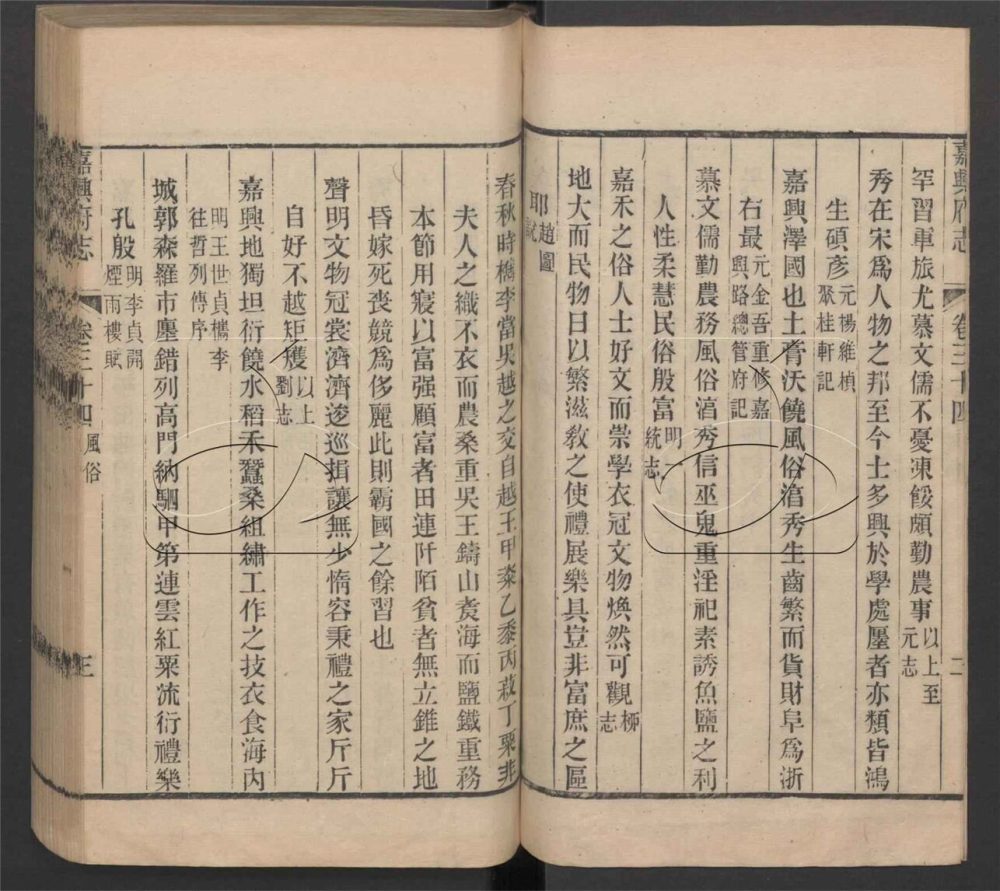 嘉興府志 卷三十四 二
罕習軍旅尤慕文儒不憂凍餒頗勤農事以上至元志
秀在宋爲人物之邦至今士多興於學處壓者亦類皆鴻
生碩彥元楊維楨聚桂軒記
嘉興澤國也土膏沃饒風俗湻秀生齒繁而貨財阜爲浙
右最元金吾重修嘉興路總管府記
慕文儒勤農務風俗湻秀信巫鬼重淫祀素誘魚鹽之利
人性柔慧民俗殷富明一統志
嘉禾之俗人士好文而崇學衣冠文物煥然可觀柳志
地大而民物日以繁滋敎之使禮展樂具豈非富庶之區
耶趙圖說
春秋時檇李當吳越之交自越王甲桼乙黍丙菽丁粟非
夫人之織不衣而農桑重吳王鑄山煑海而鹽鐵重務
本節用寖以富强顧富者田連阡陌貧者無立錐之地
昏嫁死喪競爲侈麗此則霸國之餘習也
聲明文物冠裳濟濟逡巡揖讓無少惰容秉禮之家斤斤
自好不越矩矱以上劉志
嘉興地獨坦衍饒水稻禾蠶桑組繡工作之技衣食海內
明王世貞檇李往哲列傳序
城郭森羅市廛錯列高門納駟甲第連雲紅粟流衍禮樂
孔殷明李貞開煙雨樓賦
嘉興府志 卷三十四 風俗